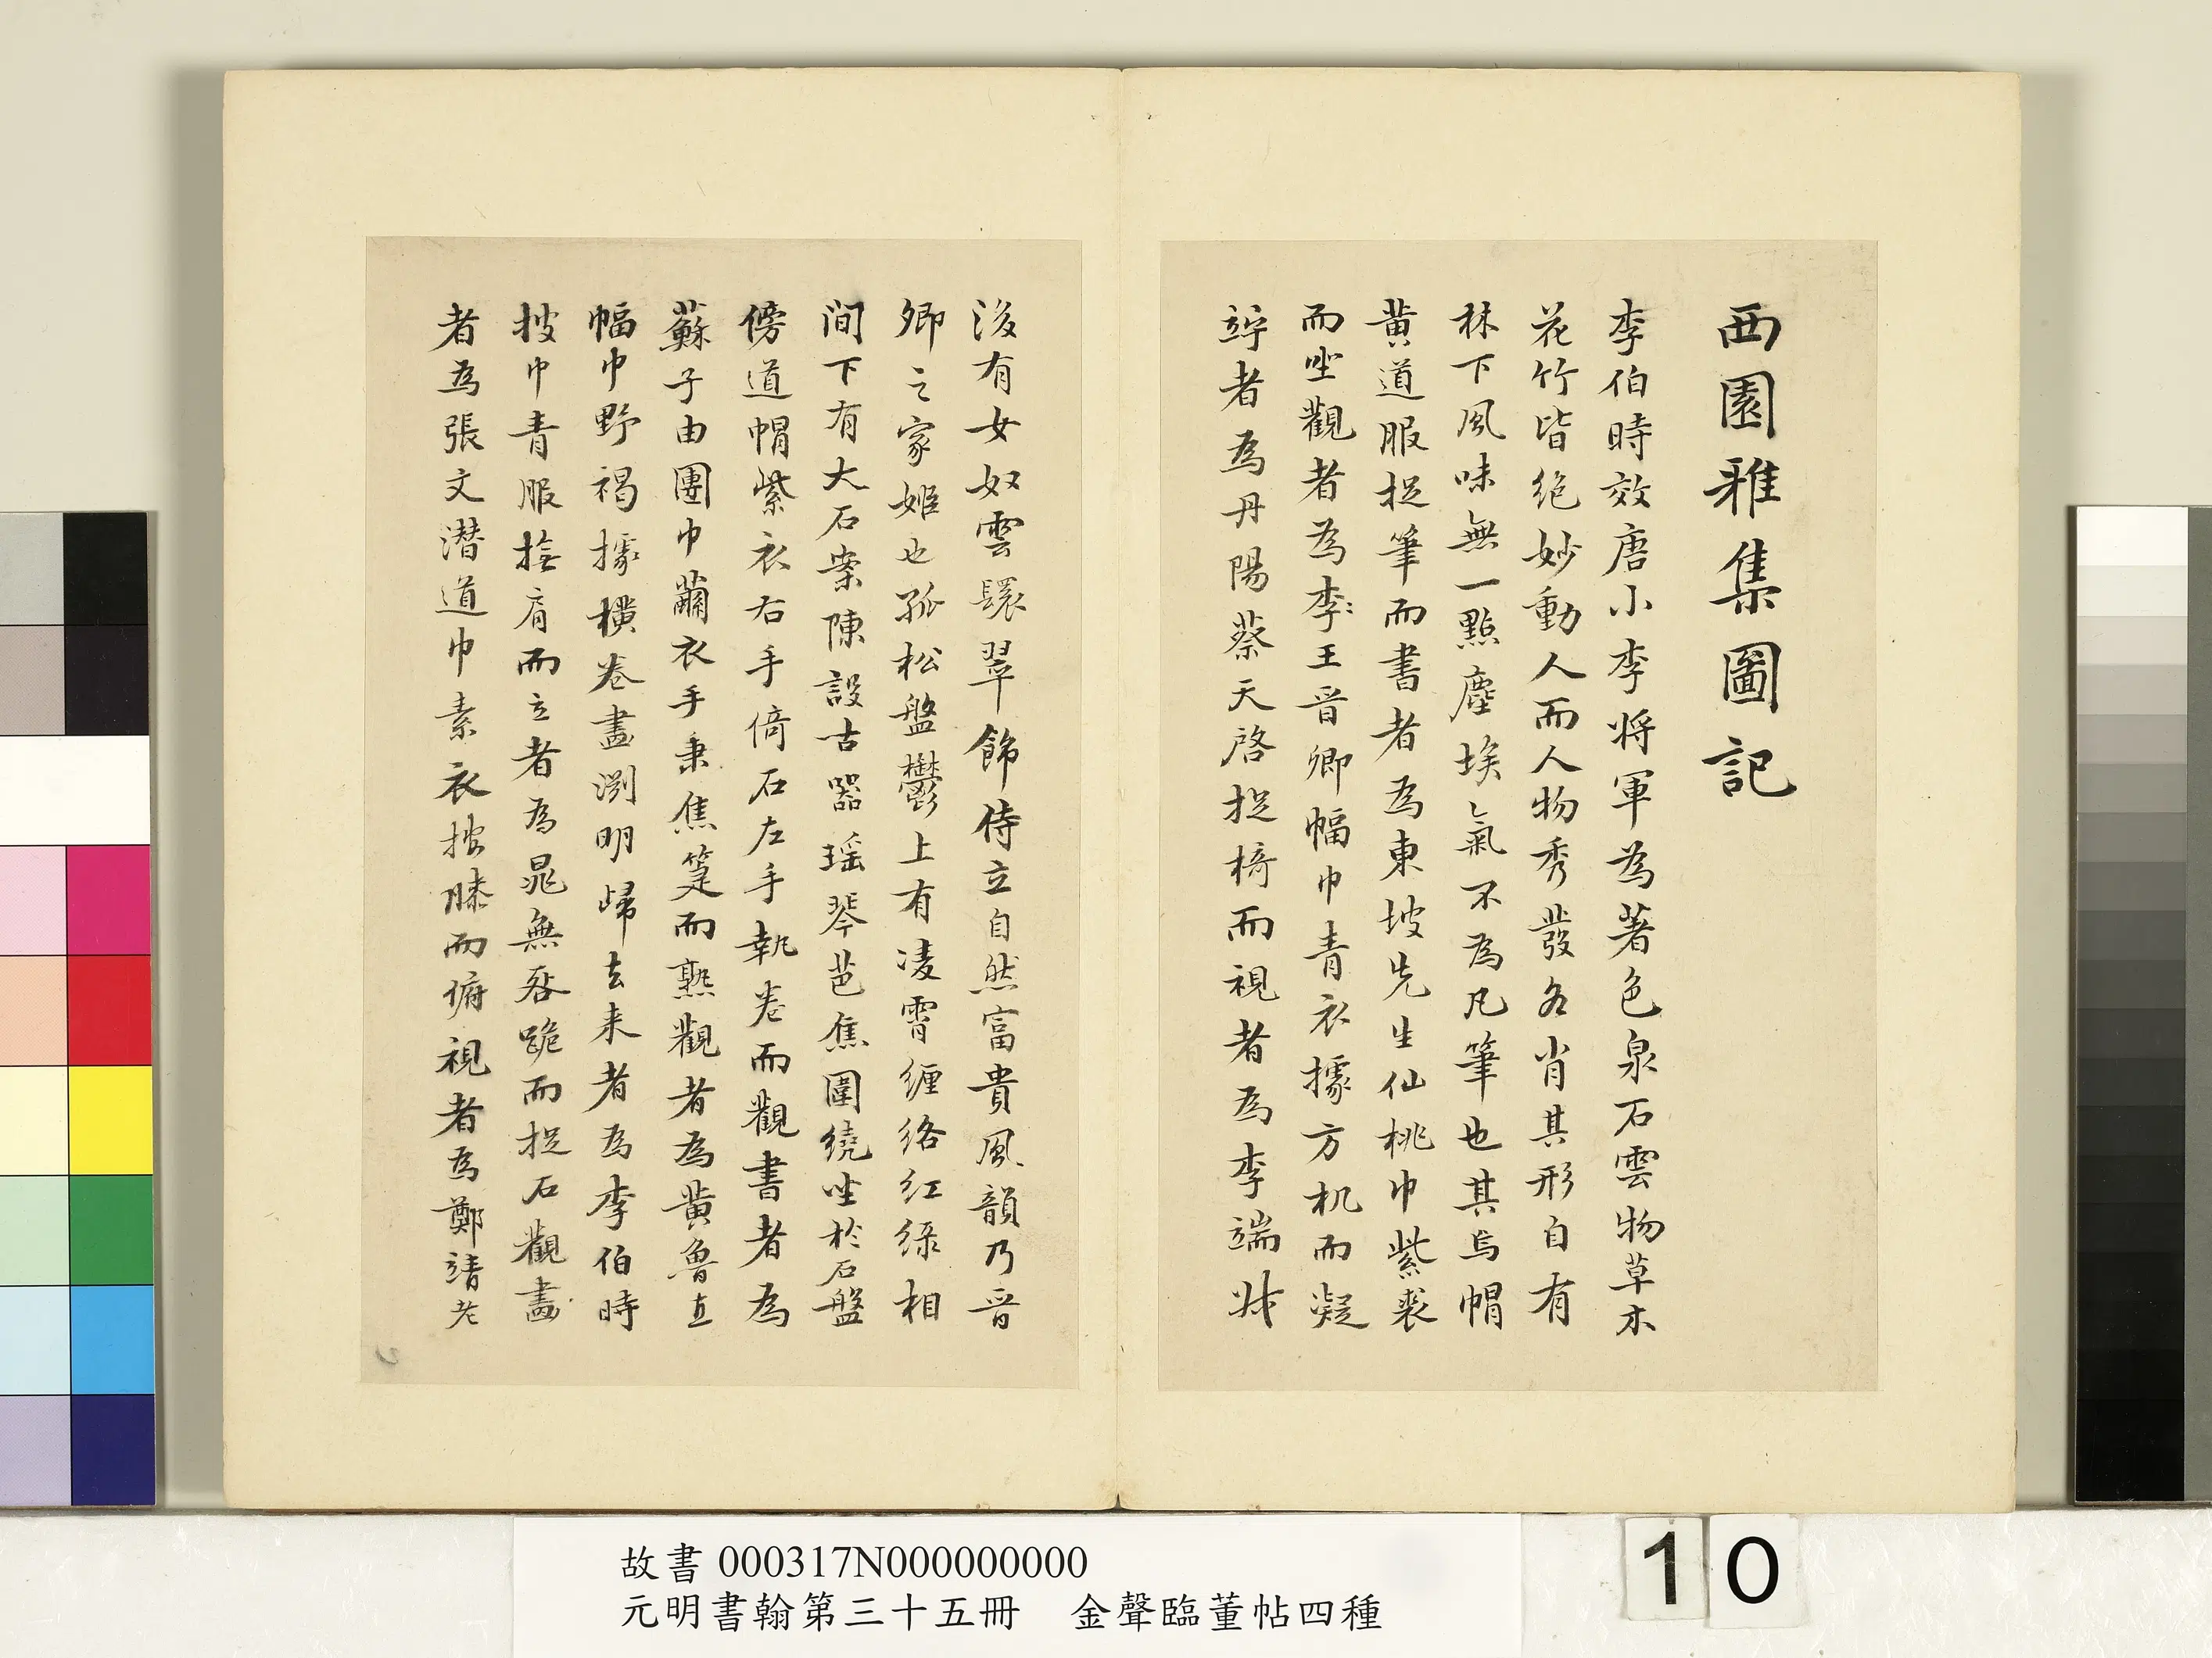 西園雅集圖記
李伯時效唐小李將軍為著色泉石雲物草木
花竹皆絶妙動人而人物秀發各肖其形自有
林下風味無一點塵埃氣不為凡筆也其烏帽
黃道服捉筆而書者為東坡先生仙桃巾紫裘
而坐觀者為李〻王晉卿幅巾青衣據方机而凝
竚者為丹陽蔡天啓捉椅而視者為李端叔
後有女奴雲鬟翠飾侍立自然富貴風韻乃晉
卿之家姬也孤松盤鬱上有凌霄纏絡紅綠相
間下有大石案陳設古器瑶琴芭焦圍繞坐於石盤
傍道帽紫衣右手倚石左手執卷而觀書者為
蘇子由團巾繭衣手秉焦箑而熟觀者為黃魯直
幅巾野褐據橫卷畫淵明歸去来者為李伯時
披巾青服撫肩而立者為晁無咎跪而捉石觀畫
者為張文潛道巾素衣按膝而俯視者為鄭靖老
故書 000317N000000000
元明書翰第三十五冊 金聲臨董帖四種
10